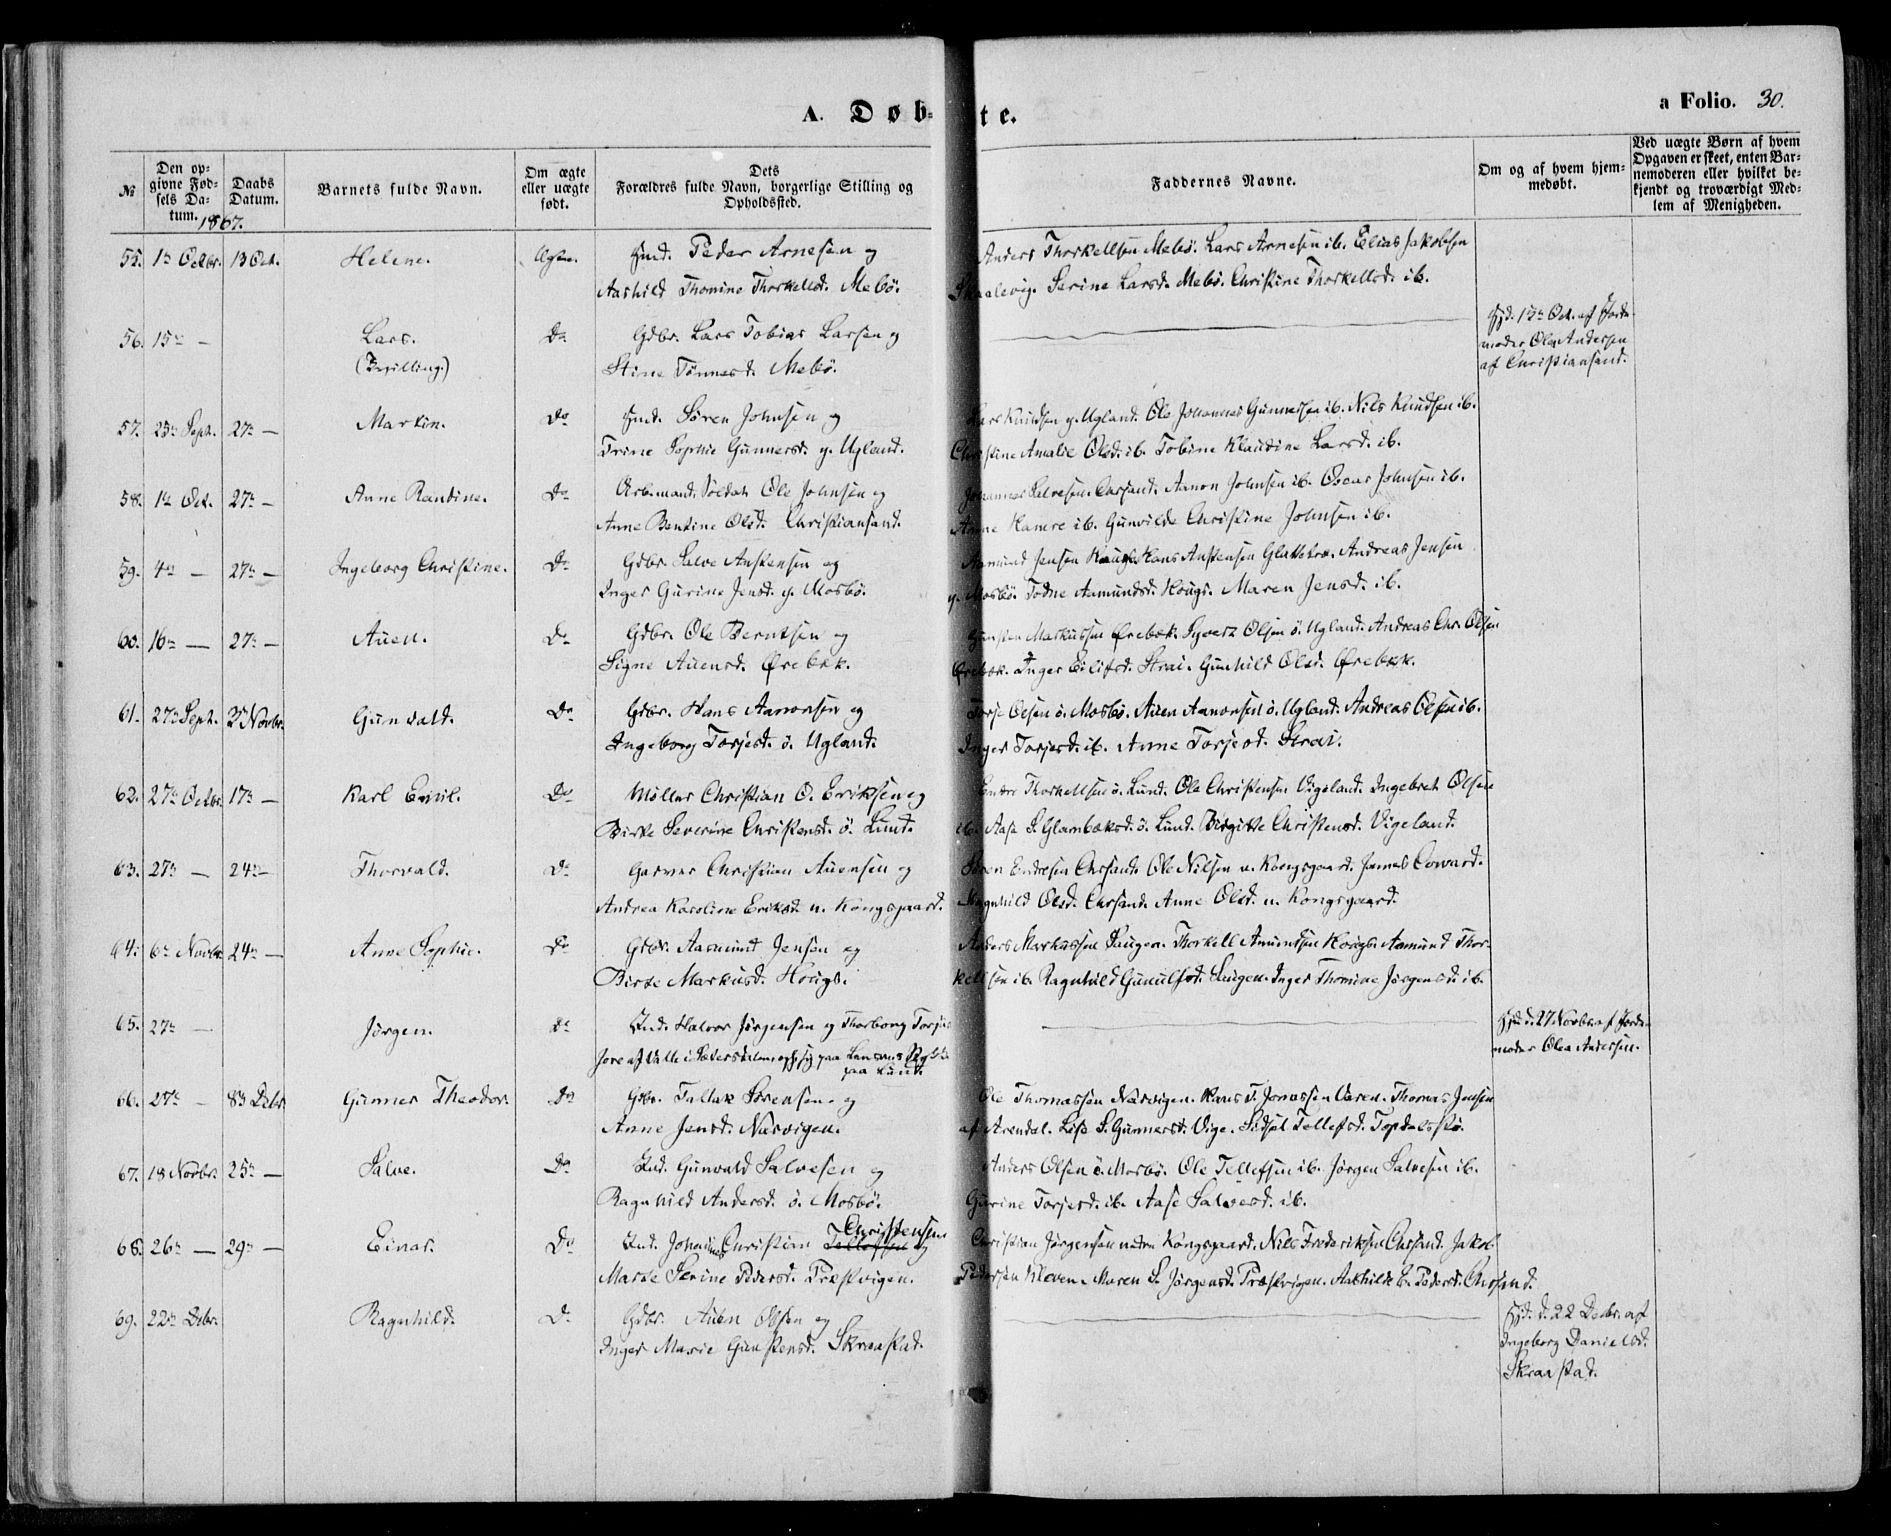 A. Døb-
te.
a Folio. 30.
№
Den op-
givne Fød-
sels Da-
tum.
1867.
Daabs
Datum.
Barnets fulde Navn.
Om ægte
eller uægte
født.
Dets
Forældres fulde Navn, borgerlige Stilling og
Opholdssted.
Faddernes Navne.
Om og af hvem hjem-
medøbt.
Ved uægte Børn af hvem
Opgaven er skeet, enten Bar-
nemoderen eller hvilket be-
kjendt og troværdigt Med-
lem af Menigheden.
55. 1ste Octbr. 13 Oct. Helene. Ægte. Hmd. Peder Arnesen og
Aashild Thomine Thorkellsd. Mebö.
Anders Thorkellsen Mebö. Lars Arnesen ib. Elias Jakobsen
Skaalevig. Serine Larsd. Mebö. Christine Thorkellsd. ib.
56. 15de — Lars. Do Gdbr. Lars Tobias Larsen og
(Tvilling.) Stine Tönnesd. Mebö.
Hjd. 15de Oct. af Jorde-
moder Olea Andersen
af Christiansand.
57. 25de Sept. 27de — Martin. Do Hmd. Sören Johnsen og
Trine Sophie Gunnersd. y. Ugland.
Lars Knudsen y. Ugland. Ole Johannes Gunnersen ib. Nils Knudsen ib.
Christine Amalie Olsd. ib. Tobine Klaudine Larsd. ib.
58. 1ste Oct. 27de — Anne Randine. Do Arb.mand, Soldat Ole Johnsen og
Anne Bentine Olsd. Christiansand.
Johannes Salvesen Chrsand. Aanon Johnsen ib. Oscar Johnsen ib.
Anne Hamre ib. Gunvilde Christine Johnsen ib.
59. 4de — 27de — Ingeborg Christine. Do Gdbr. Salve Anstensen og
Inger Gurine Jensd. y. Mosbö.
Aamund Jensen Hougs. Hans Anstensen Glattetræ. Andreas Jensen
y. Mosbö. Todne Aamundsd. Hougs. Maren Jensd. ib.
60. 16de — 27de — Auen. Do Gdbr. Ole Berntsen og
Signe Auensd. Ørebæk.
Gunsten Markussen Ørebæk. Syvert Olsen ö. Ugland. Andreas Chr. Olsen
Ørebæk. Inger Eilifsd. Strai. Gunhild Olsd. Ørebæk.
61. 27de Sept. 3de Novbr. Gunvald. Do Gdbr. Hans Aanonsen og
Ingeborg Torjesd. ö. Ugland.
Torje Olsen ö. Mosbö. Auen Aanonsen ö. Ugland. Andreas Olsen ib.
Inger Torjesd. ib. Anne Torjesd. Strai.
62. 27de Octbr. 17de — Karl Emil. Do Möller Christian O. Eriksen og
Birte Severine Christensd. ö. Lund.
Endre Thorkellsen ö. Lund. Ole Christensen Vigeland. Ingebret Olsen
ib. Aase S. Glambæksd. ö. Lund. Birgitte Christensd. Vigeland.
63. 27de — 24de — Thorvald. Do Garver Christian Auensen og
Andrea Karoline Eriksd. n. Kongsgaard.
Sören Endresen Chrsand. Ole Nilsen n. Kongsgaard. James Coward.
Magnhild Olsd. Chrsand. Anne Olsd. n. Kongsgaard.
64. 6te Novbr. 24de — Anne Sophie. Do Gdbr. Aamund Jensen og
Birte Markusd. Hougs.
Anders Markussen Laugen. Thorkell Amundsen Hougs. Aamund Thor-
kellsen ib. Ragnhild Gunulfsd. Laugen. Inger Thomine Jörgensd. ib.
65. 27de — Jörgen. Do Ind. Halvor Jörgensen og Thorborg Torjus
paa Lund.
Hjd. d. 27 Novbr. af Jorde-
moder Olea Andersen.
66. 27de — 8de Debr. Gunner Theodor. Do Gdbr. Tallak Sörensen og
Anne Jensd. Narvigen.
Ole Thomassen Narvigen. Hans T. Jonassen Varen. Thomas Jensen
af Arendal. Lise S. Gunnersd. Vige. Sidsel Tellefsd. Topdalsstö.
67. 18 Novbr. 25de — Salve. Do Ind. Gunvald Salvesen og
Ragnhild Andersd. ö. Mosbö.
Anders Olsen ö. Mosbö. Ole Tellefsen ib. Jörgen Salvesen ib.
Gurine Torjesd. ib. Aase Salvesd. ib.
68. 26de — 29de — Einar. Do Ind. Johannes Christian Tellefsen Christensen og
Marte Serine Pedersd. Træskvigen.
Christian Jörgensen nedre Kongsgaard. Nils Frederiksen Chrsand. Jakob
Pedersen Kleven. Maren S. Jörgensd. Træskvigen. Aashilde E. Pedersd. Chrsand.
69. 22de Debr. Ragnhild. Do Gdbr. Auen Olsen og
Inger Marie Gunstensd. Skraastad.
Hjd. d. 22 Debr. af
Ingeborg Danielsd.
Skraastad.